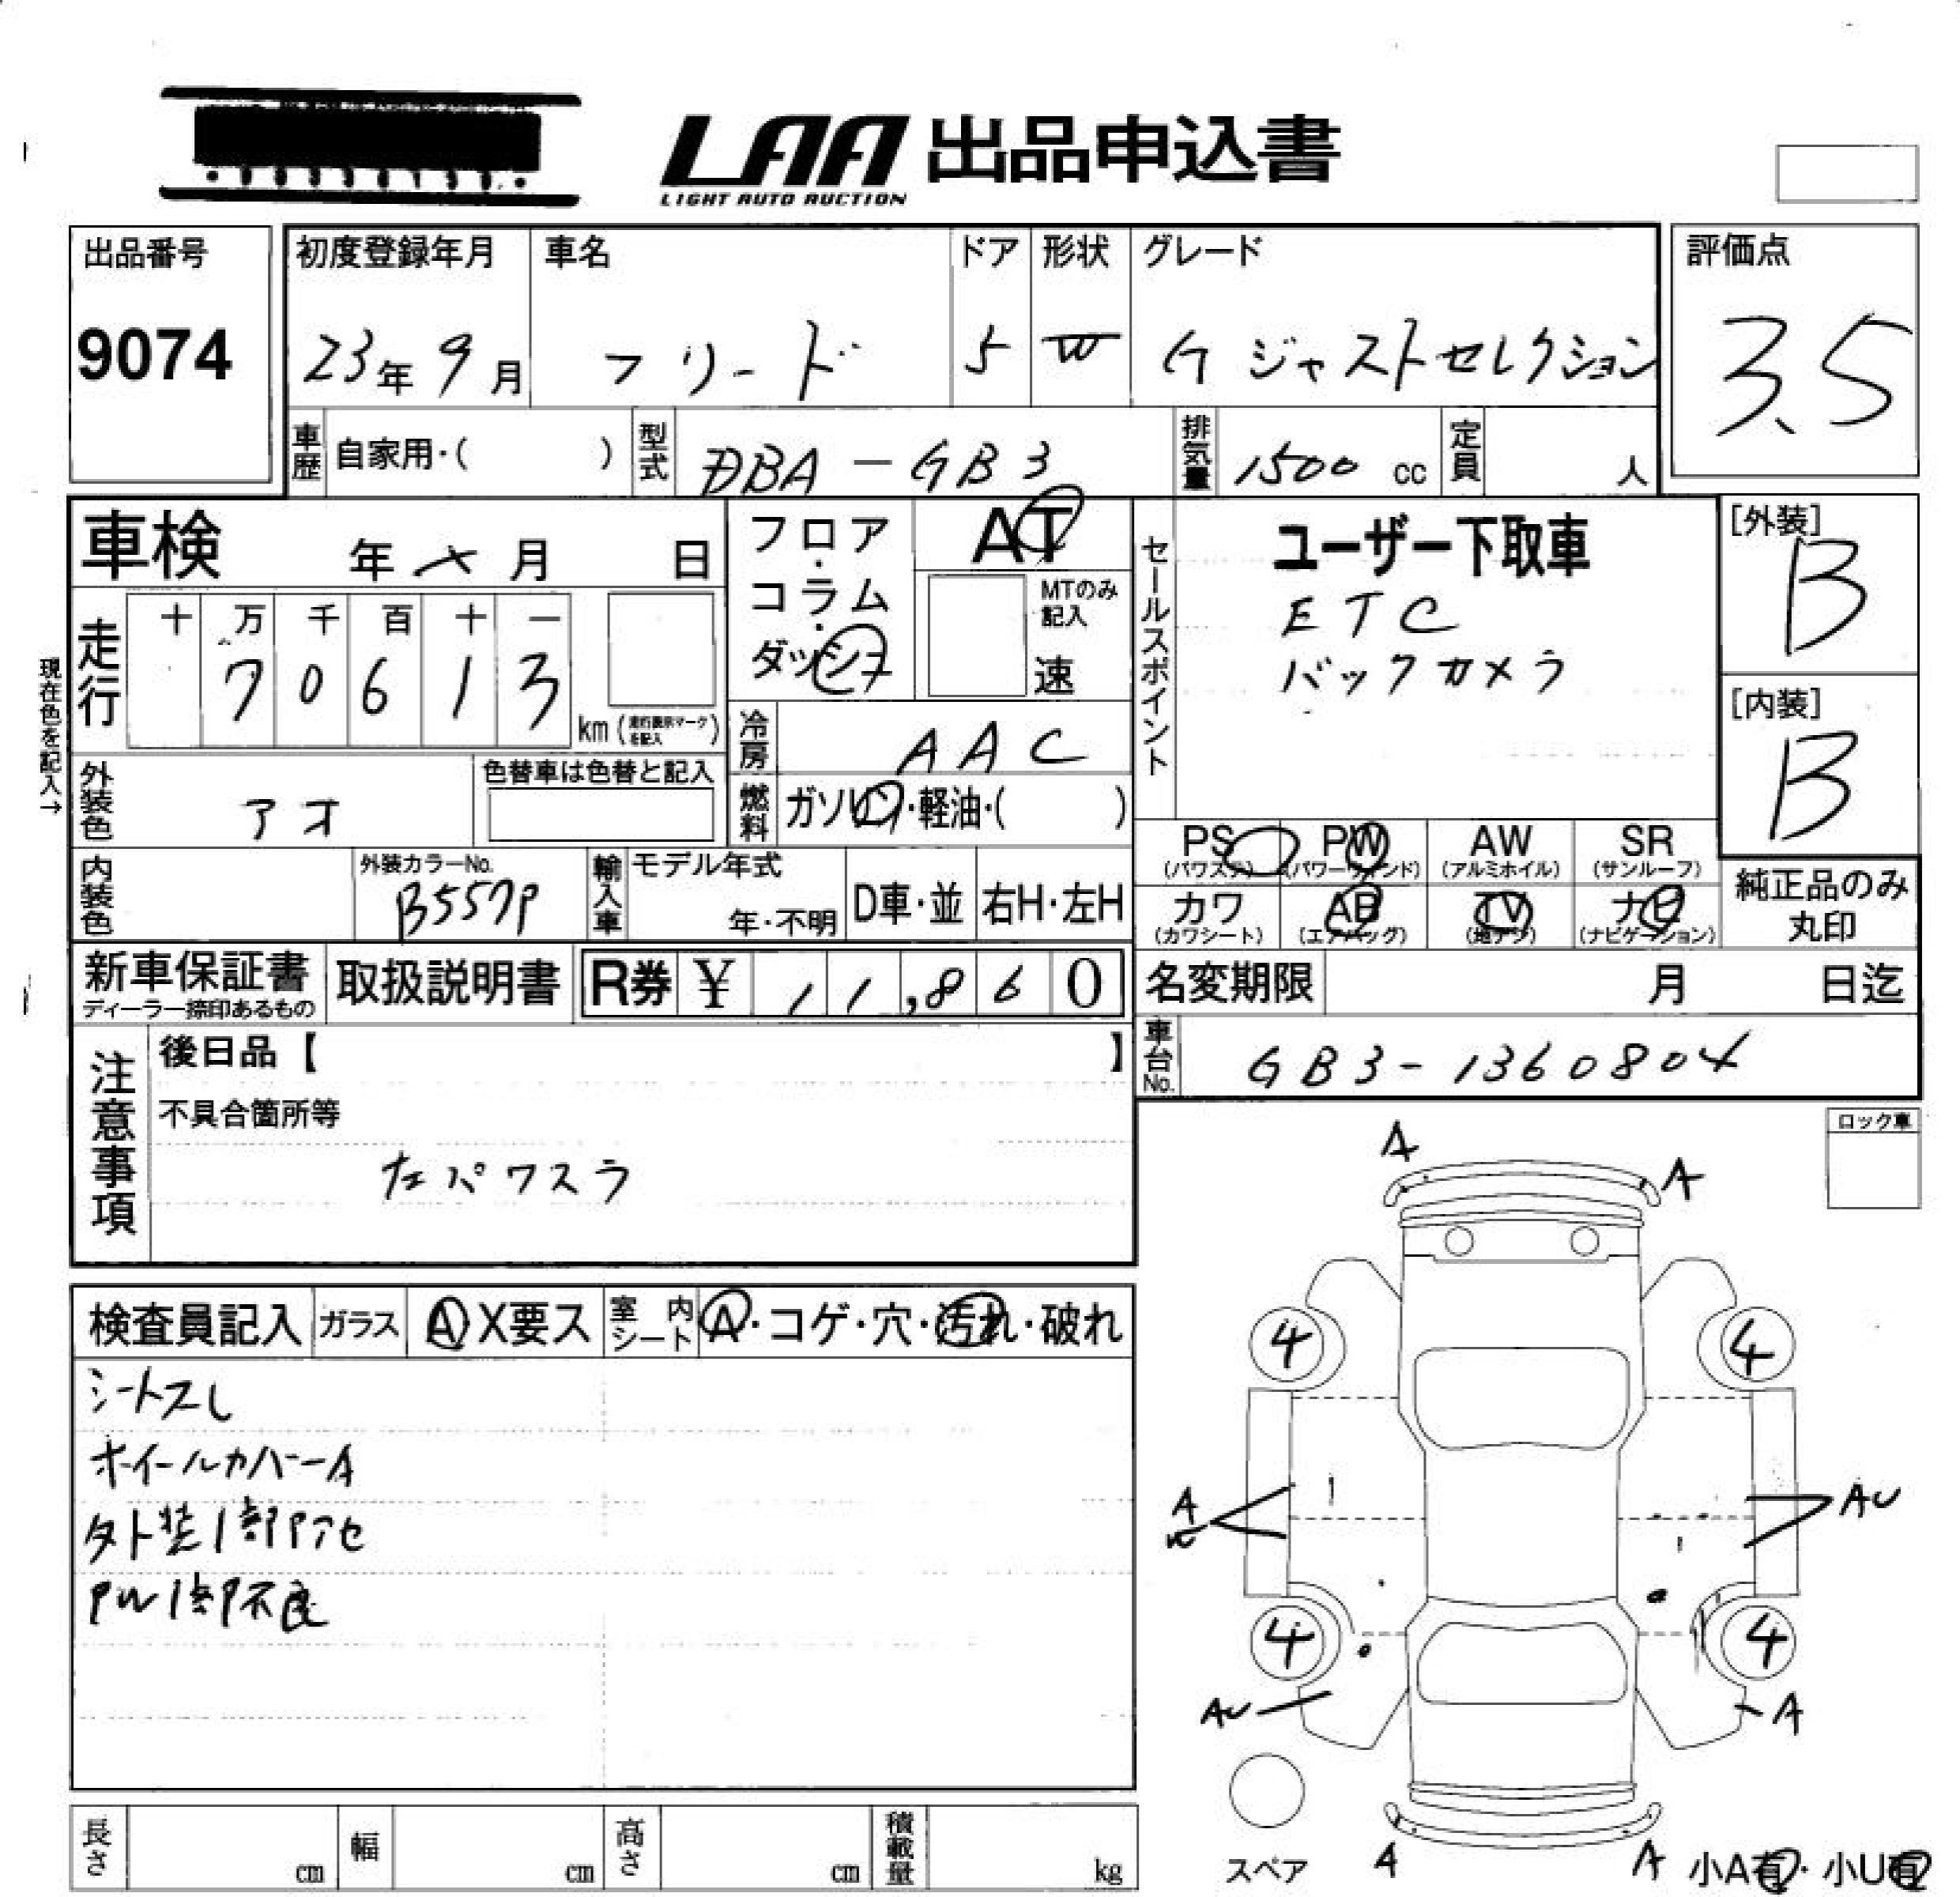 LAA 出品申込書
LIGHT AUTO AUCTION
出品番号
9074
初度登録年月 車名 ドア 形状 グレード
23年 9月 フリード 5 W G ジャストセレクション
評価点
3.5
車歴 自家用・( ) 型式 DBA-GB3 排気量 1500 cc 定員 人
車検 年 × 月 日
フロア・コラム・ダッシュ
AT
MTのみ記入
速
セールスポイント
ユーザー下取車
ETC
バックカメラ
[外装]
B
[内装]
B
現在色を記入→
走行
十 万 千 百 十 一
7 0 6 1 3
km (走行表示マークを記入)
冷房 AAC
外装色 アオ
色替車は色替と記入
燃料 ガソリン・軽油・( )
PS (パワステ) PW (パワーウィンド) AW (アルミホイル) SR (サンルーフ)
カワ (カワシート) AB (エアバッグ) TV (地デジ) ナビ (ナビゲーション)
純正品のみ丸印
内装色
外装カラーNo.
B557P
輸入車 モデル年式 年・不明 D車・並 右H・左H
新車保証書
ディーラー捺印あるもの
取扱説明書
R券 ¥ 11,860
名変期限 月 日迄
車台No. GB3-1360804
注意事項
後日品【 】
不具合箇所等
左パワスラ
ロック車
検査員記入 ガラス A X要ス 室内シート A・コゲ・穴・汚れ・破れ
シートスレ
ホイールカバーA
外装1部アセ
PW1部不良
A
A
4
4
A
AU
4
4
AU
A
スペア
A
A
小A有・小U有
長さ cm 幅 cm 高さ cm 積載量 kg